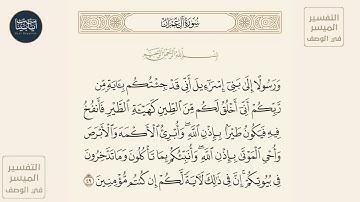 التفسير
الميسر
في الوصف
سُورَةُ آلِ عِمْرَانَ
بِسْمِ اللَّهِ الرَّحْمَٰنِ الرَّحِيمِ
وَرَسُولًا إِلَىٰ بَنِي إِسْرَائِيلَ أَنِّي قَدْ جِئْتُكُم بِآيَةٍ مِّن
رَّبِّكُمْ أَنِّي أَخْلُقُ لَكُم مِّنَ الطِّينِ كَهَيْئَةِ الطَّيْرِ فَأَنفُخُ
فِيهِ فَيَكُونُ طَيْرًا بِإِذْنِ اللَّهِ وَأُبْرِئُ الْأَكْمَهَ وَالْأَبْرَصَ
وَأُحْيِي الْمَوْتَىٰ بِإِذْنِ اللَّهِ وَأُنَبِّئُكُم بِمَا تَأْكُلُونَ وَمَا تَدَّخِرُونَ
فِي بُيُوتِكُمْ إِنَّ فِي ذَٰلِكَ لَآيَةً لَّكُمْ إِن كُنتُم مُّؤْمِنِينَ ٤٩
التفسير
الميسر
في الوصف